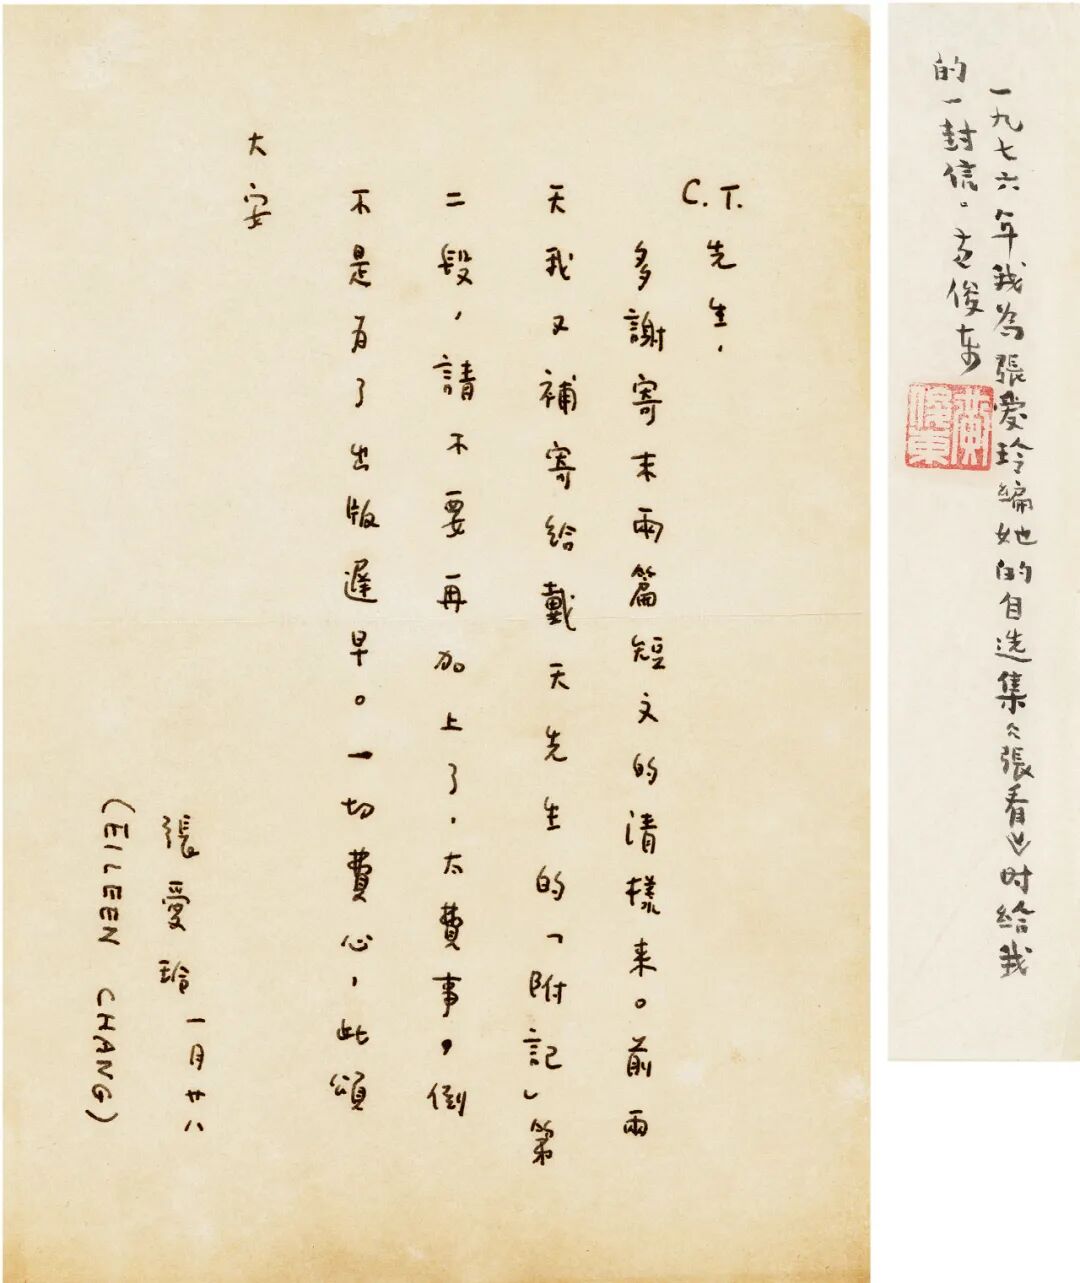 C.T.先生，
多謝寄来兩篇短文的清樣来。前兩
天我又補寄給戴天先生的「附記」第
二段，請不要再加上了，太費事。倒
不是为了出版遲早。一切費心，此頌
大安
張愛玲 一月廿八
(EILEEN CHANG)
一九七六年我為張愛玲編她的自选集《張看》时給我
的一封信。黄俊东
黃俊東